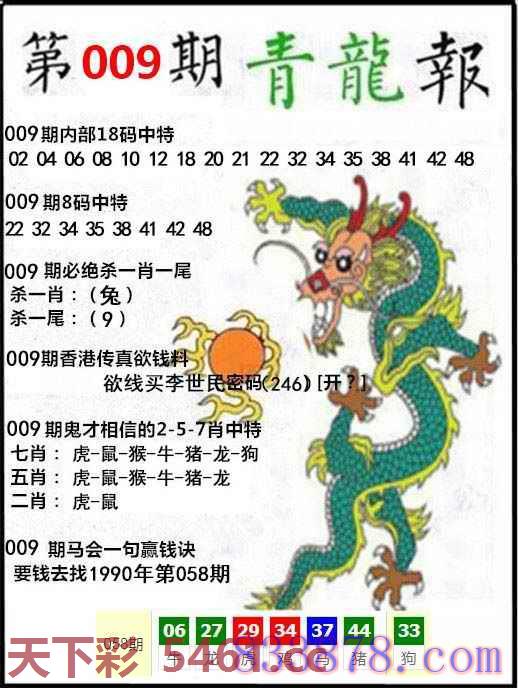 第009期青龍報
009期内部18码中特
02 04 06 08 10 12 18 20 21 22 32 34 35 38 41 42 48
009期8码中特
22 32 34 35 38 41 42 48
009期必绝杀一肖一尾
杀一肖：（兔）
杀一尾：（9）
009期香港传真欲钱料
欲线买李世民密码(246) [开？]
009期鬼才相信的2-5-7肖中特
七肖：虎-鼠-猴-牛-猪-龙-狗
五肖：虎-鼠-猴-牛-猪-龙
二肖：虎-鼠
009 期马会一句赢钱诀
要钱去找1990年第058期
058期 06 27 29 34 37 44 33
牛 龙 虎 鸡 马 猪 狗
天下彩 5461.cc